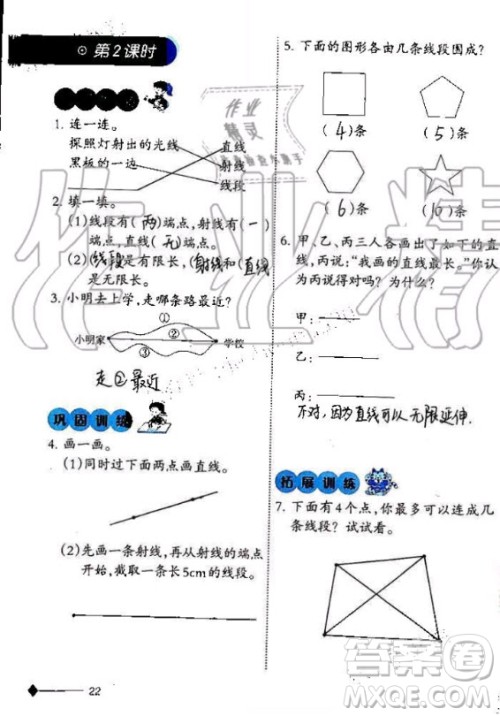 第2课时
1. 连一连。
探照灯射出的光线 直线
射线
黑板的一边 线段
2. 填一填。
(1)线段有(两)端点,射线有(一)
端点,直线(无)端点。
(2)(线段)是有限长,(射线)和(直线)
是无限长。
3. 小明去上学,走哪条路最近?
①
小明家 ② 学校
③
走②最近
巩固训练
4. 画一画。
(1)同时过下面两点画直线。
(2)先画一条射线,再从射线的端点
开始,截取一条长5cm的线段。
22
5. 下面的图形各由几条线段围成?
(4)条 (5)条
(6)条 (10)条
6. 甲、乙、丙三人各画出了如下的直
线,丙说:“我画的直线最长,”你认
为丙说得对吗?为什么?
甲:
乙:
丙:
不对,因为直线可以无限延伸.
拓展训练
7. 下面有4个点,你最多可以连成几
条线段?试试看。
作业精灵
作业精
答案圈
MXQE.COM